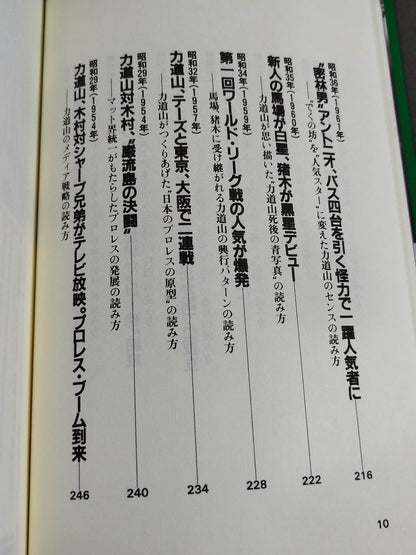 昭和36年(1961年)
“密林男”アントニオ、バス四台を引く怪力で一躍人気者に
——“でくの坊”を“人気スター”に変えた力道山のセンスの読み方
216
昭和35年(1960年)
新人の馬場が白星、猪木が黒星デビュー
——力道山が思い描いた“力道山死後の青写真”の読み方
222
昭和34年(1959年)
第一回ワールド・リーグ戦の人気が爆発
——馬場、猪木に受け継がれる力道山の興行パターンの読み方
228
昭和32年(1957年)
力道山、テーズと東京、大阪で二連戦
——力道山がつくりあげた“日本のプロレスの原型”の読み方
234
昭和29年(1954年)
力道山対木村、“巌流島の決闘”
——マット界統一がもたらしたプロレスの発展の読み方
240
昭和29年(1954年)
力道山、木村対シャープ兄弟がテレビ放映。プロレス・ブーム到来
——力道山のメディア戦略の読み方
246
10